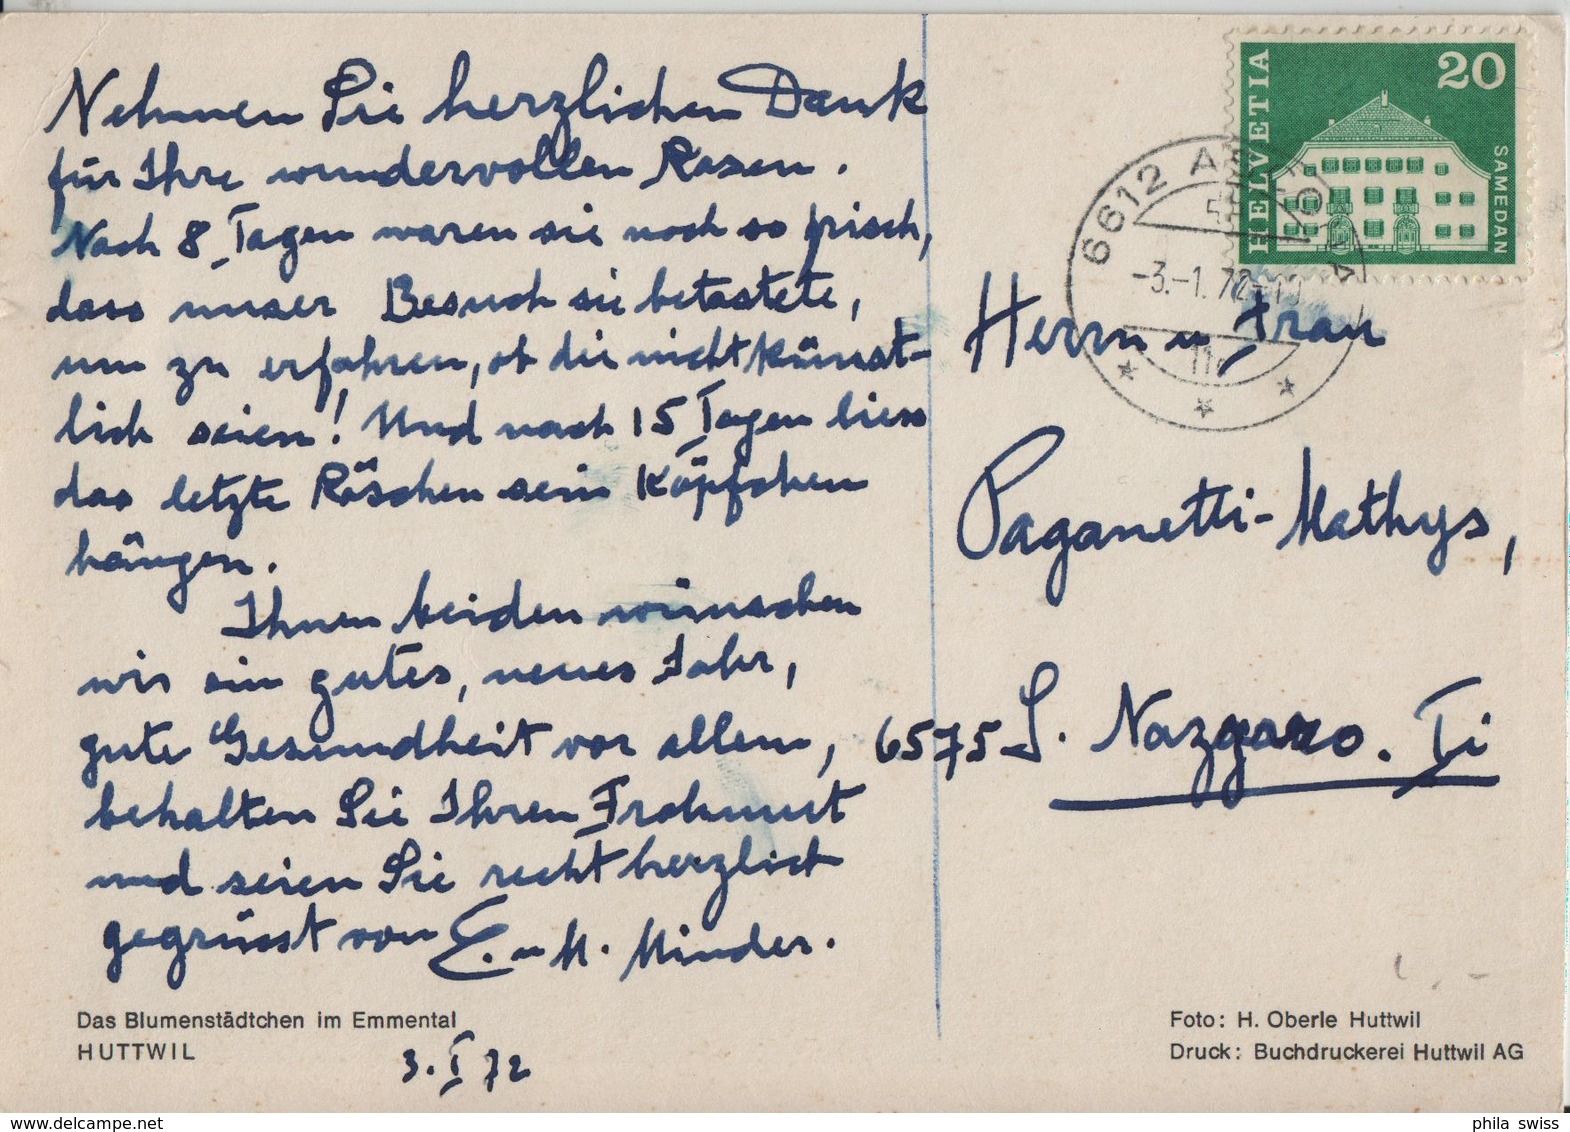 Nehmen Sie herzlichen Dank
für Ihre wundervollen Rosen.
Nach 8 Tagen waren sie noch so frisch,
dass unser Besuch sie betastete,
um zu erfahren, ob die nicht künst-
lich seien! Und nach 15 Tagen liess
das letzte Röschen sein Köpfchen
hängen.
Ihnen beiden wünschen
wir ein gutes, neues Jahr,
gute Gesundheit vor allem,
behalten Sie Ihren Frohmut
und seien Sie recht herzlich
gegrüsst von E. u M. Minder.
Das Blumenstädtchen im Emmental
HUTTWIL
3. I 72
HELVETIA
20
SAMEDAN
6612
-3.-1.72
Herrn u Frau
Paganetti-Mathys,
6575 S. Nazzaro. Ti
Foto: H. Oberle Huttwil
Druck: Buchdruckerei Huttwil AG
phila swiss